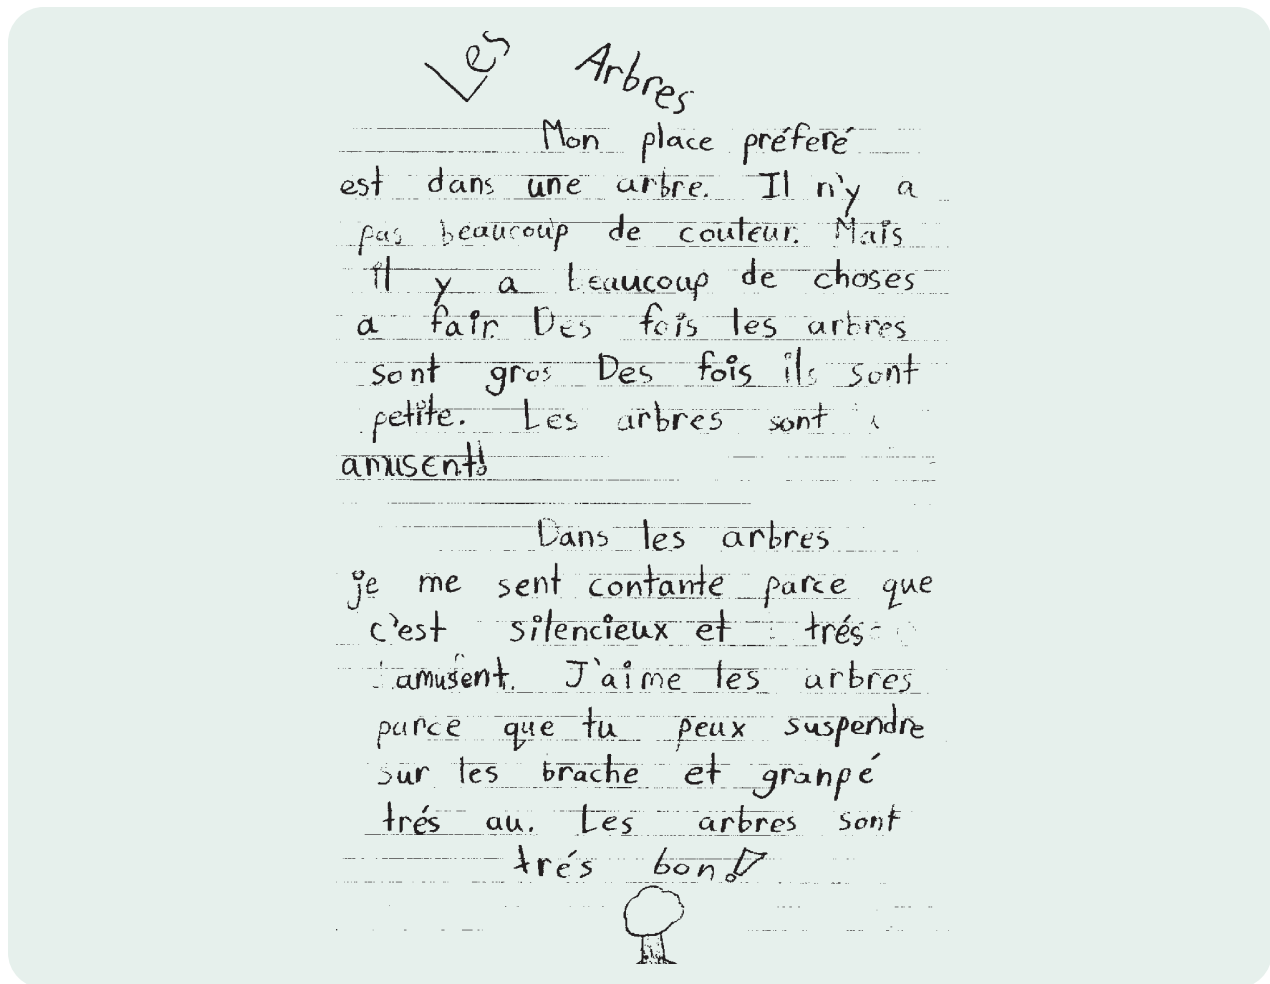 Les Arbres
Mon place préferé
est dans une arbre. Il n'y a
pas beaucoup de couleur. Mais
il y a beaucoup de choses
a fair. Des fois les arbres
sont gros Des fois ils sont
petite. Les arbres sont
amusent!
Dans les arbres
je me sent contante parce que
c'est silencieux et trés
amusent. J'aime les arbres
parce que tu peux suspendre
sur les brache et granpé
trés au. Les arbres sont
trés bon!